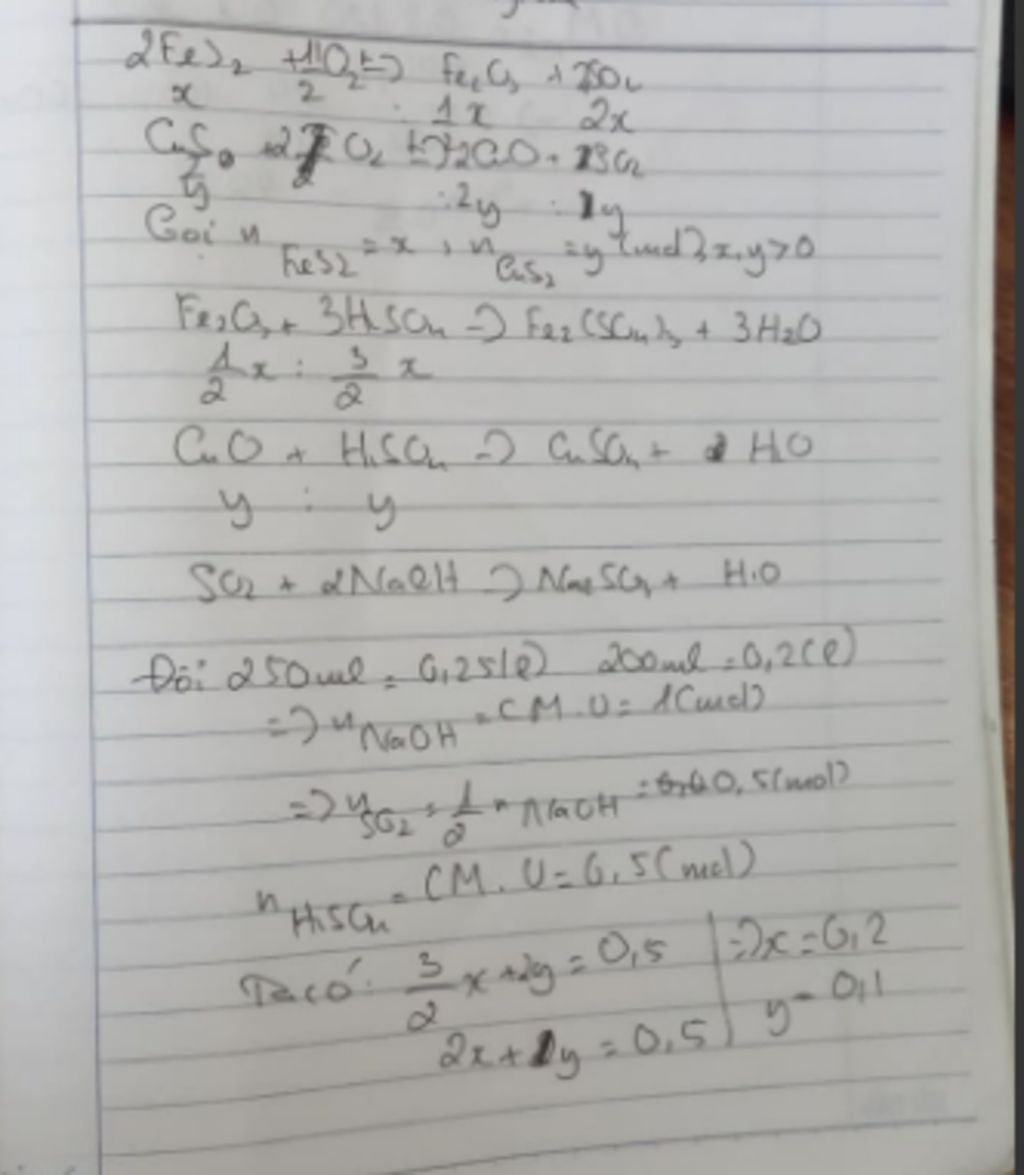 2FeS2 + 11/2 O2 => Fe2O3 + 2SO2
x 1x 2x
Cu2S + 2 O2 => 2CuO + 1SO2
y : 2y : 1y
Gọi n FeS2 = x, n CuS2 = y (mol) x, y > 0
Fe2O3 + 3H2SO4 => Fe2(SO4)3 + 3H2O
1/2 x : 3/2 x
CuO + H2SO4 => CuSO4 + H2O
y : y
SO2 + 2NaOH => Na2SO3 + H2O
Đổi 250ml = 0,25(l) 200ml = 0,2(l)
=> n NaOH = CM.V = 1(mol)
=> n SO2 = 1/2 n NaOH = 0,5(mol)
n H2SO4 = CM.V = 0,5(mol)
Ta có: 3/2 x + 2y = 0,5 | => x = 0,2
2x + 1y = 0,5 | y = 0,1